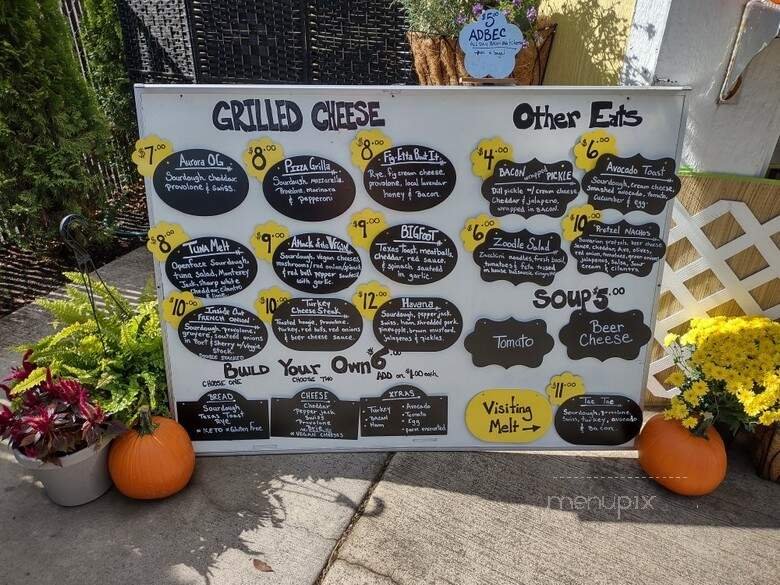 $5.00
ADBEC
GRILLED CHEESE
Other Eats
$7.00
Aurora OG
Sourdough, cheddar,
provolone & swiss.
$8.00
Pizza Grilla
Sourdough, mozzarella,
Provolone, marinara
& pepperoni
$8.00
Fig-Etta Bout It
Rye, fig cream cheese,
provolone, local lavender
honey & bacon.
$4.00
BACON wrapped PICKLE
Dill pickle w/ cream cheese
Cheddar & jalapeno,
wrapped in bacon.
$6.00
Avocado Toast
Sourdough, cream cheese,
smashed avocado, tomato,
cucumber & egg.
$8.00
TUNA MELT
Openface Sourdough
tuna salad, Monterey
Jack, sharp white
Cheddar, cilantro
& lime
$9.00
Attack of the VEGAN
Sourdough, vegan cheese,
mushrooms/red onion/spinach
& red bell pepper sauteed
with garlic.
$9.00
BIGFOOT
Texas Toast, meatballs,
cheddar, red sauce,
& spinach sauteed
in garlic.
$6.00
Zoodle Salad
Zucchini noodles, fresh basil,
tomatoes & feta tossed
in house balsamic
$10.00
Pretzel NACHOS
Bavarian pretzels, beer cheese
sauce, cheddar,
red onion, tomatoes, green onion
jalapenos, salsa, sour
cream & cilantro
$10.00
Inside Out
FRENCH ONION
Sourdough, provolone,
gruyere, sauteed onions
in Port & sherry w/ Veggie
Stock.
DOUBLE STACKED
$10.00
Turkey
Cheese Steak
Toasted hoagie, provolone,
turkey, red bells, red onions
& beer cheese sauce
$12.00
Havana
Sourdough, pepperjack
Swiss, ham, shredded pork
pineapple, brown mustard,
jalapenos & pickles.
SOUP $5.00
Tomato
Beer
Cheese
Build Your Own $6.00
CHOOSE ONE
CHOOSE TWO
ADD ON $1.00 each
BREAD
Sourdough
Texas Toast
Rye
* KETO * Gluten Free
CHEESE
Cheddar
Pepper Jack
Swiss
Provolone
* BRIE *
* VEGAN CHEESES
XTRAS
• Turkey
• Bacon
• Ham
• Avocado
• Tomato
• Egg
• parm encrusted
Visiting
Melt →
$11.00
Tic Tac
Sourdough, provolone,
Swiss, turkey, avocado
& Bacon.
menupix